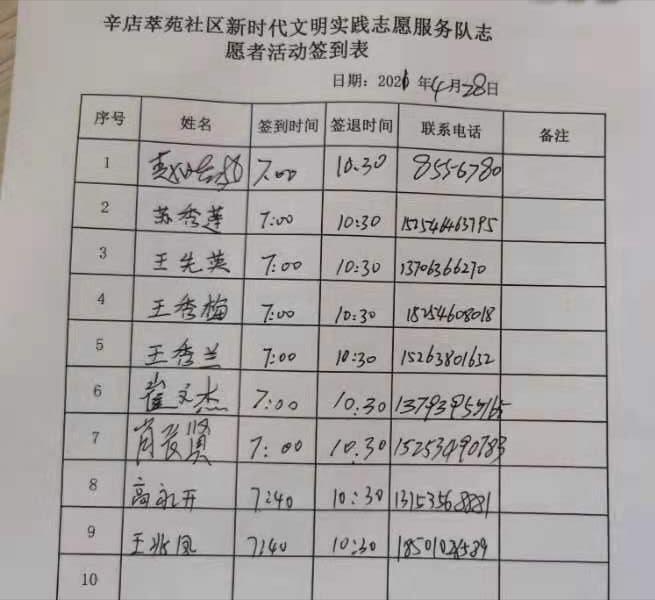 辛店萃苑社区新时代文明实践志愿服务队志
愿者活动签到表
日期：2021年4月28日
序号 姓名 签到时间 签退时间 联系电话 备注
1 7:00 10:30 8556780
2 苏秀莲 7:00 10:30 152546463795
3 王先英 7:00 10:30 13706366270
4 王秀梅 7:00 10:30 18254608018
5 王秀兰 7:00 10:30 15263801632
6 崔文杰 7:00 10:30
7 7:00 10:30
8 高永开 7:40 10:30 13153568881
9 王兆凤 7:40 10:30
10